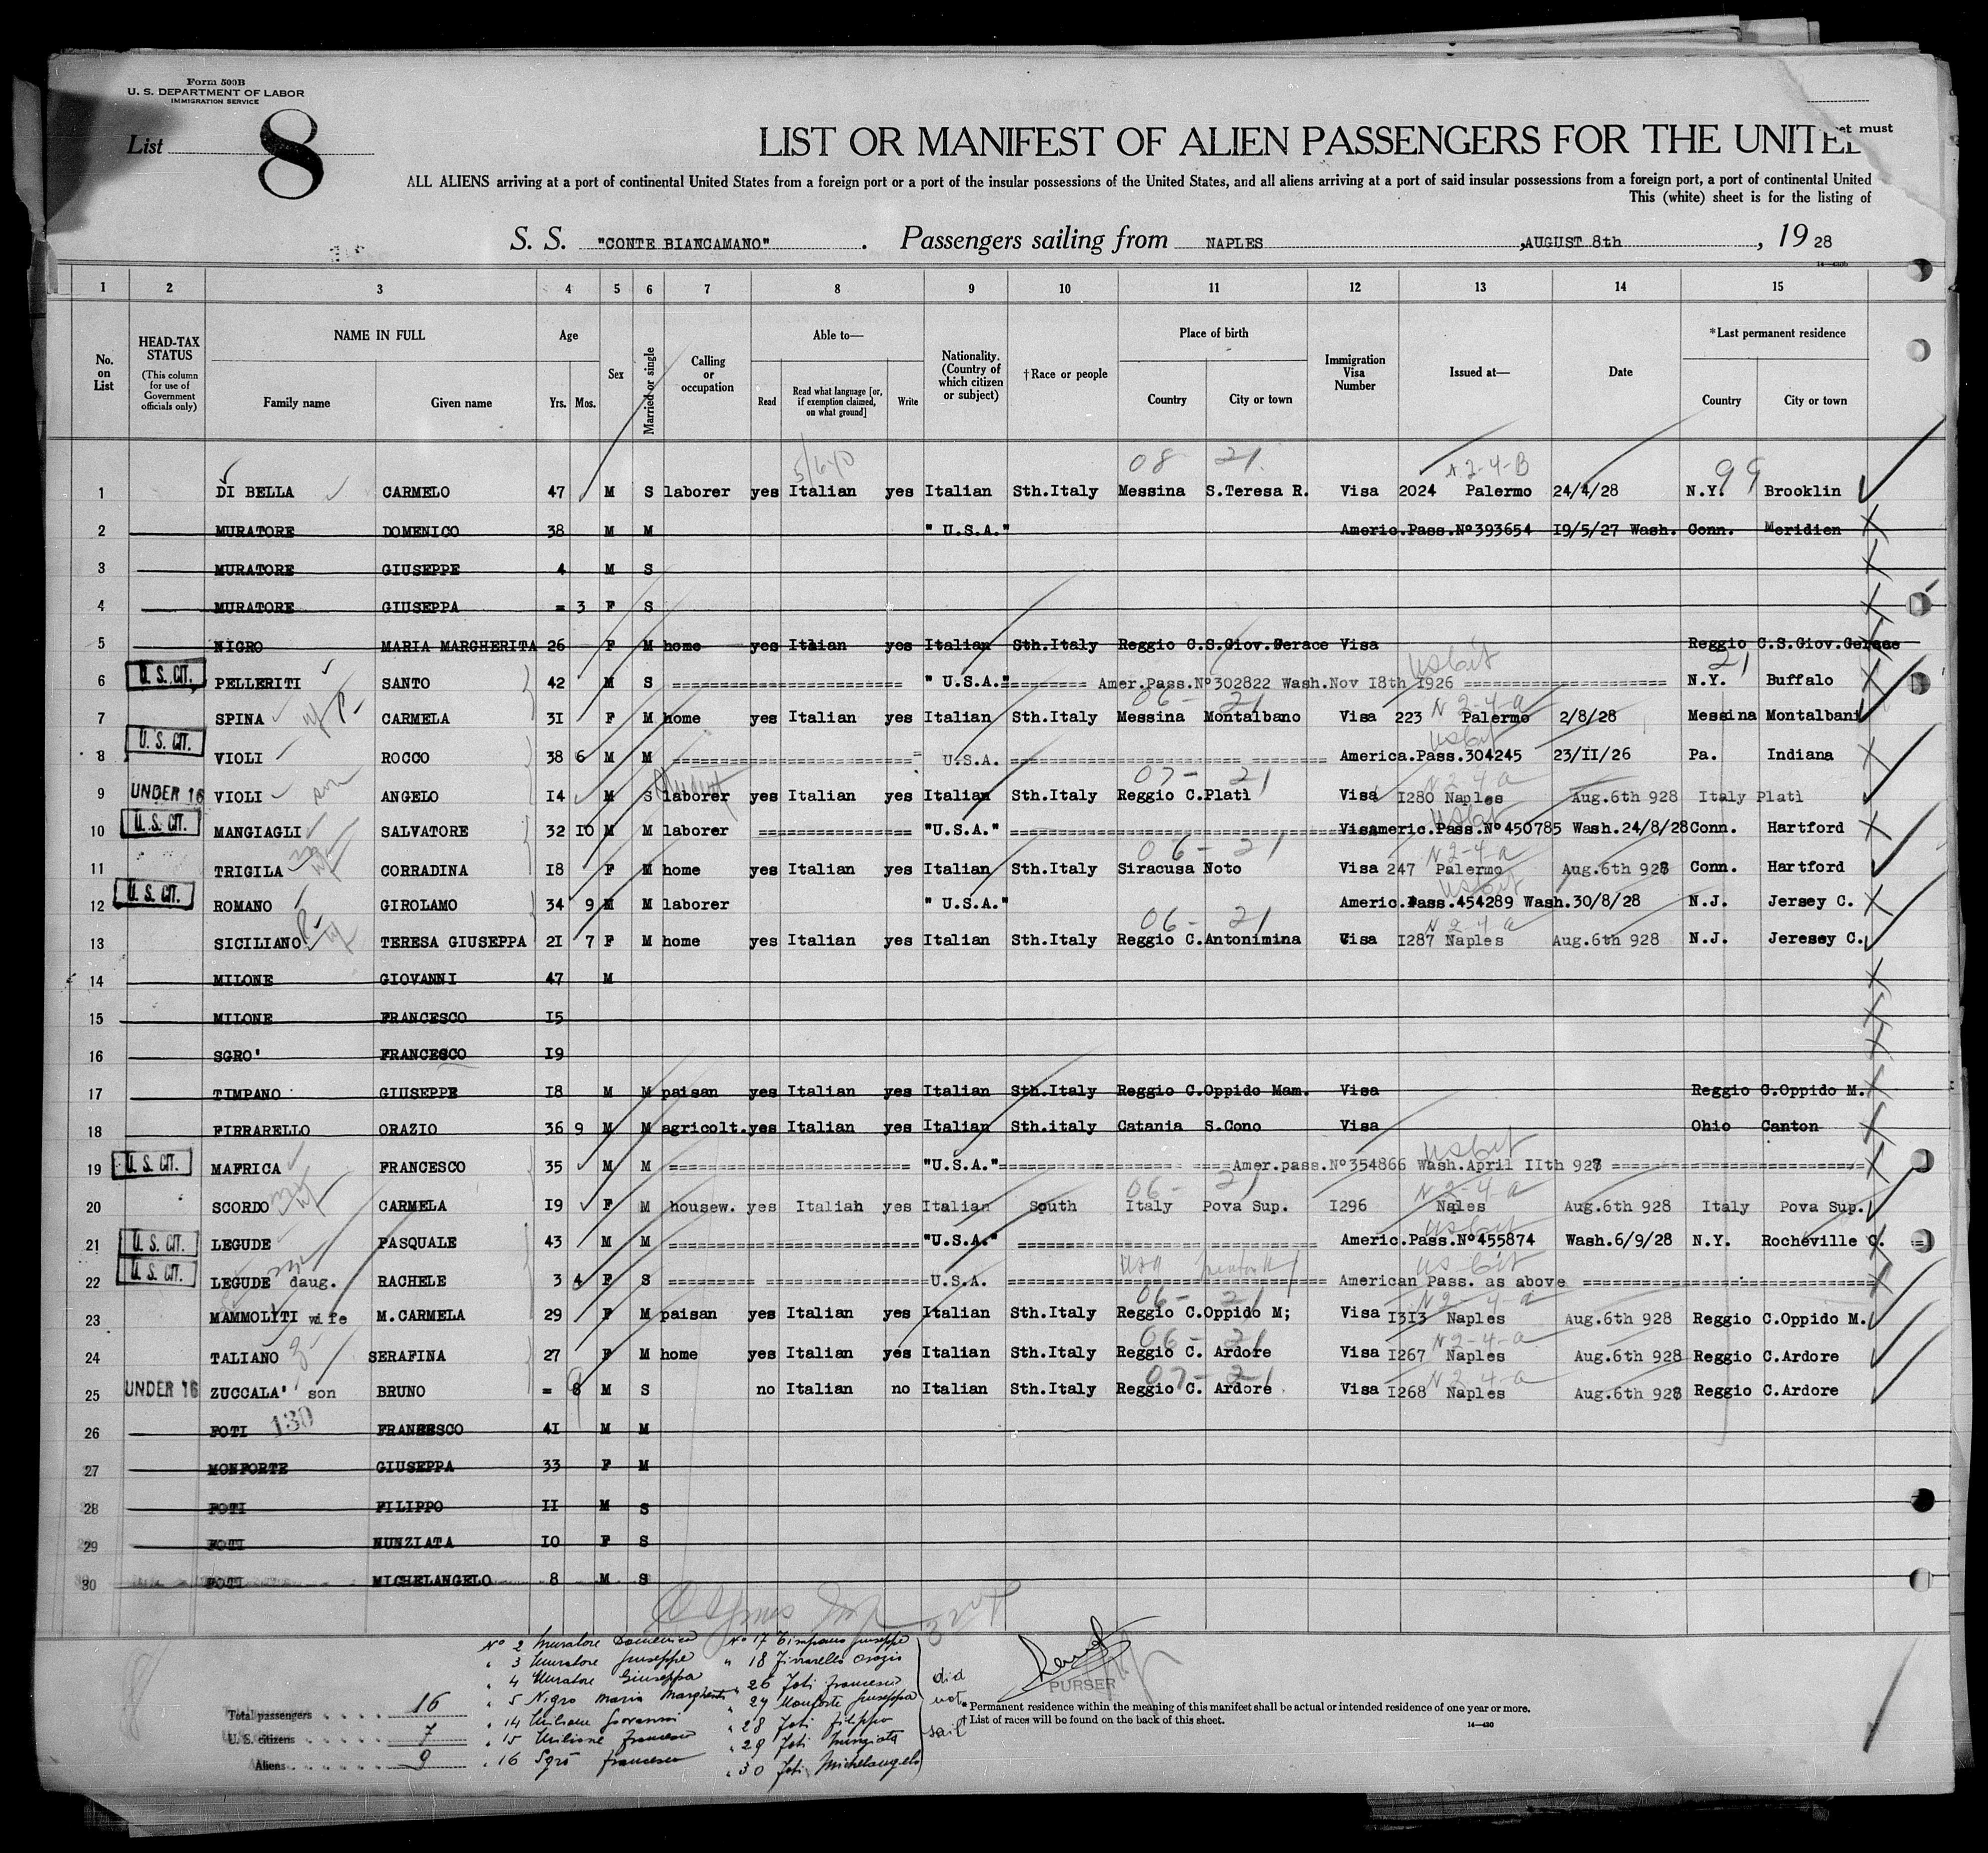 Form 500B
U. S. DEPARTMENT OF LABOR
IMMIGRATION SERVICE
List 8
LIST OR MANIFEST OF ALIEN PASSENGERS FOR THE UNITE
must
ALL ALIENS arriving at a port of continental United States from a foreign port or a port of the insular possessions of the United States, and all aliens arriving at a port of said insular possessions from a foreign port, a port of continental United
This (white) sheet is for the listing of
S. S. "CONTE BIANCAMANO" . Passengers sailing from NAPLES ,AUGUST 8th , 19 28
1 2 3 4 5 6 7 8 9 10 11 12 13 14 15
No. on List HEAD-TAX STATUS (This column for use of Government officials only) NAME IN FULL Family name Given name Age Yrs. Mos. Sex Married or single Calling or occupation Able to— Read Read what language [or, if exemption claimed, on what ground] Write Nationality. (Country of which citizen or subject) †Race or people Place of birth Country City or town Immigration Visa Number Issued at— Date *Last permanent residence Country City or town
5/640 08 21. N 2-4-B 99
1 DI BELLA CARMELO 47 M S laborer yes Italian yes Italian Sth.Italy Messina S.Teresa R. Visa 2024 Palermo 24/4/28 N.Y. Brooklin
2 MURATORE DOMENICO 38 M M " U.S.A." Americ.Pass.Nº393654 I9/5/27 Wash. Conn. Meridien
3 MURATORE GIUSEPPE 4 M S
4 MURATORE GIUSEPPA = 3 F S
5 NIGRO MARIA MARGHERITA 26 F M home yes Itlian yes Italian Sth.Italy Reggio C.S.Giov.Gerace Visa Reggio C.S.Giov.Gerace
U. S. CIT. 21
6 PELLERITI SANTO 42 M S " U.S.A." Amer.Pass.Nº302822 Wash.Nov I8th I926 N.Y. Buffalo
06 - 21 N 2-4-a
7 SPINA CARMELA 3I F M home yes Italian yes Italian Sth.Italy Messina Montalbano Visa 223 Palermo 2/8/28 Messina Montalbani
U. S. CIT.
8 VIOLI ROCCO 38 6 M M U.S.A. America.Pass.304245 23/II/26 Pa. Indiana
07 - 21 N 2-4-a
9 UNDER 16 VIOLI son ANGELO I4 M S laborer yes Italian yes Italian Sth.Italy Reggio C.Platì Visa I280 Naples Aug.6th 928 Italy Platì
U. S. CIT.
10 MANGIAGLI SALVATORE 32 IO M M laborer "U.S.A." Visameric.Pass.Nº450785 Wash.24/8/28 Conn. Hartford
06 - 21 N 2-4-a
11 TRIGILA CORRADINA I8 F M home yes Italian yes Italian Sth.Italy Siracusa Noto Visa 247 Palermo Aug.6th 928 Conn. Hartford
U. S. CIT.
12 ROMANO GIROLAMO 34 9 M M laborer " U.S.A." Americ.Pass.454289 Wash.30/8/28 N.J. Jersey C.
06 - 21 N 2-4-a
13 SICILIANO TERESA GIUSEPPA 2I 7 F M home yes Italian yes Italian Sth.Italy Reggio C.Antonimina Visa I287 Naples Aug.6th 928 N.J. Jeresey C.
14 MILONE GIOVANNI 47 M
15 MILONE FRANCESCO I5
16 SGRO' FRANCESCO I9
17 TIMPANO GIUSEPPE I8 M M paisan yes Italian yes Italian Sth.Italy Reggio C.Oppido Mam. Visa Reggio C.Oppido M.
18 FIRRARELLO ORAZIO 36 9 M M agricolt.yes Italian yes Italian Sth.italy Catania S.Cono Visa Ohio Canton
19 U. S. CIT. MAFRICA FRANCESCO 35 M M "U.S.A." Amer.pass.Nº354866 Wash.April IIth 927
06 - 21 N 2-4-a
20 SCORDO CARMELA I9 F M housew. yes Italiah yes Italian South Italy Pova Sup. I296 Nales Aug.6th 928 Italy Pova Sup.
21 U. S. CIT. LEGUDE PASQUALE 43 M M "U.S.A." Americ.Pass.Nº455874 Wash.6/9/28 N.Y. Rocheville C.
22 U. S. CIT. LEGUDE daug. RACHELE 3 4 F S U.S.A. American Pass. as above
06 - 21 N 2-4-a
23 MAMMOLITI wife M.CARMELA 29 F M paisan yes Italian yes Italian Sth.Italy Reggio C.Oppido M; Visa I3I3 Naples Aug.6th 928 Reggio C.Oppido M.
06 - 21 N 2-4-a
24 TALIANO SERAFINA 27 F M home yes Italian yes Italian Sth.Italy Reggio C. Ardore Visa I267 Naples Aug.6th 928 Reggio C.Ardore
07 - 21 N 2-4-a
25 UNDER 16 ZUCCALA' son BRUNO = 8 M S no Italian no Italian Sth.Italy Reggio C. Ardore Visa I268 Naples Aug.6th 928 Reggio C.Ardore
26 FOTI 130 FRANSESCO 4I M M
27 MONFORTE GIUSEPPA 33 F M
28 FOTI FILIPPO II M S
29 FOTI NUNZIATA IO F S
30 FOTI MICHELANGELO 8 M S
Nº 2 Muratore Domenico Nº 17 Timpano Giuseppe
" 3 Muratore Giuseppe " 18 Firrarello Orazio
" 4 Muratore Giuseppa " 26 Foti Francesco
" 5 Nigro Maria Margherita " 27 Monforte Giuseppa
" 14 Milone Giovanni " 28 Foti Filippo
" 15 Milione Francesco " 29 Foti Nunziata
" 16 Sgrò Francesco " 30 Foti Michelangelo
did not sail
PURSER
Total passengers . . . . 16
U. S. citizens . . . . . 7
Aliens . . . . . . 9
* Permanent residence within the meaning of this manifest shall be actual or intended residence of one year or more.
† List of races will be found on the back of this sheet.
14—430